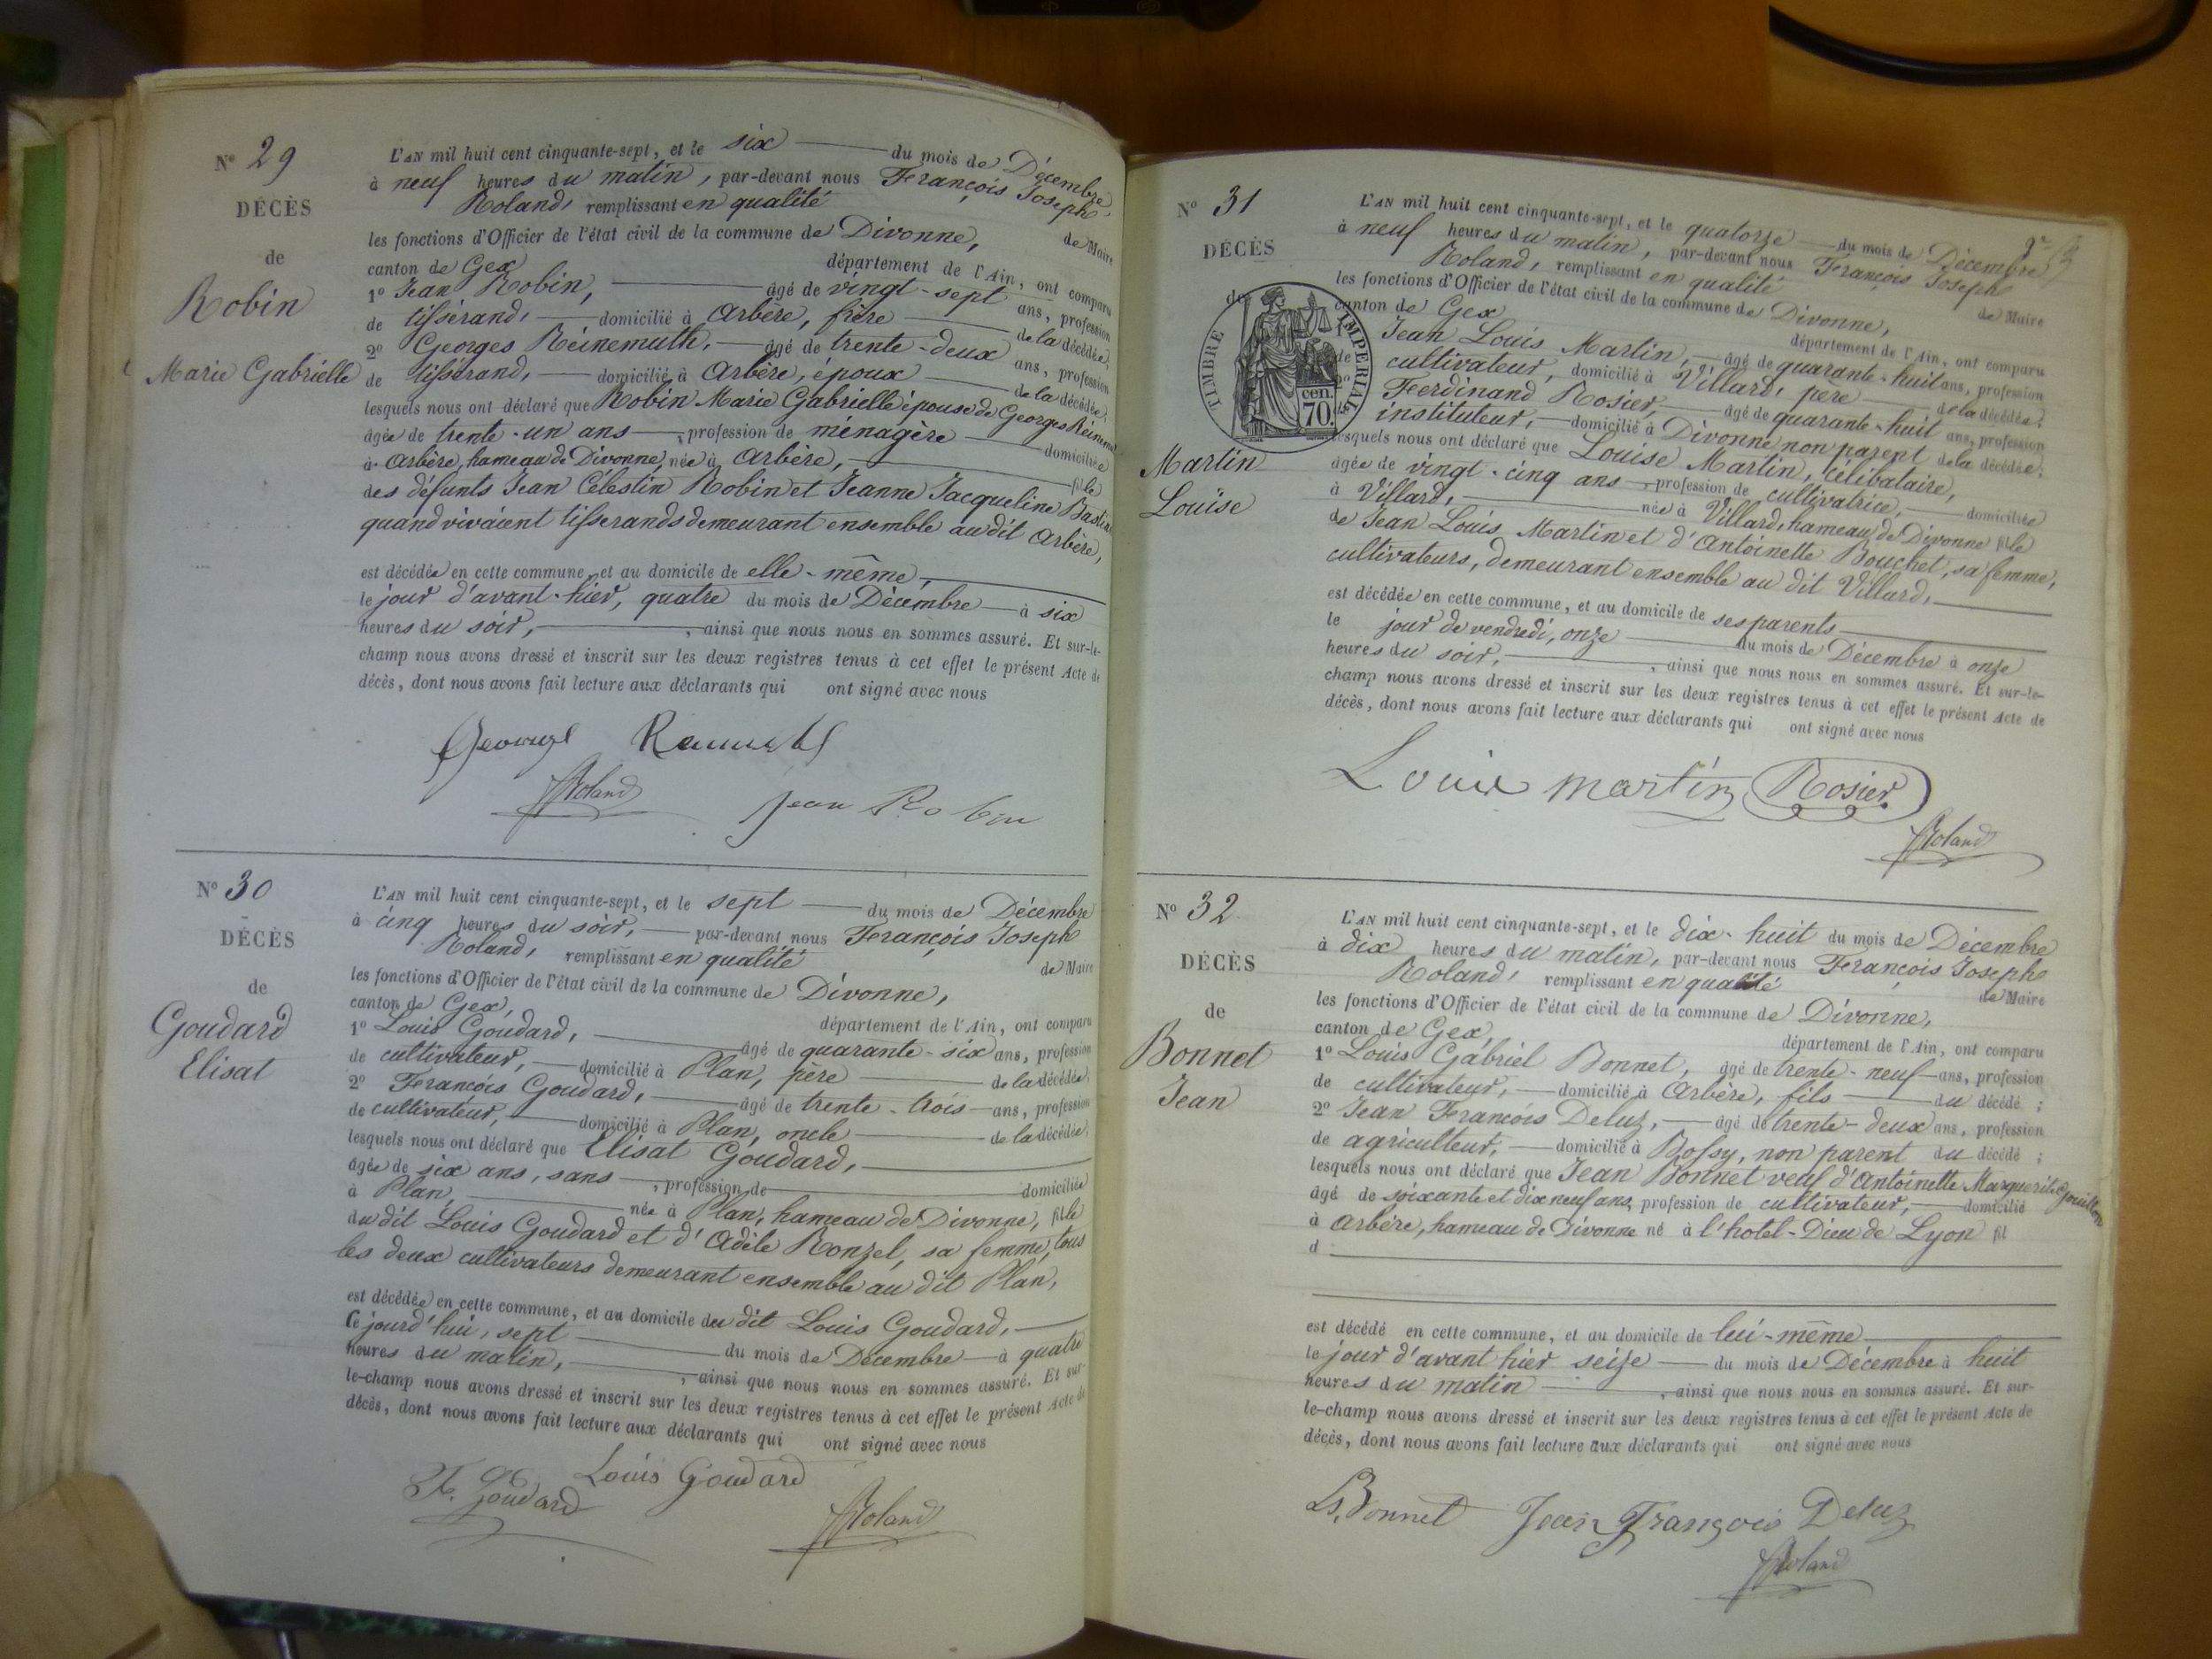 N° 29
DÉCÈS
de
Robin
Marie Gabrielle
L'AN mil huit cent cinquante-sept, et le six du mois de Décembre
à neuf heures du matin, par-devant nous François Joseph
Roland, remplissant en qualité de Maire
les fonctions d'Officier de l'état civil de la commune de Divonne,
canton de Gex département de l'Ain, ont comparu
1° Jean Robin, âgé de vingt-sept ans, profession
de tisserand, domicilié à Arbère, frère de la décédée;
2° Georges Reinemuth, âgé de trente-deux ans, profession
de tisserand, domicilié à Arbère, époux de la décédée;
lesquels nous ont déclaré que Robin Marie Gabrielle épouse de Georges
âgée de trente-un ans, profession de ménagère domiciliée
à Arbère, hameau de Divonne, née à Arbère, fille
des défunts Jean Célestin Robin et Jeanne Jacqueline
quand vivaient tisserands demeurant ensemble au dit Arbère,
est décédée en cette commune, et au domicile de elle-même,
le jour d'avant-hier, quatre du mois de Décembre à six
heures du soir, ainsi que nous nous en sommes assuré. Et sur-le-
champ nous avons dressé et inscrit sur les deux registres tenus à cet effet le présent Acte de
décès, dont nous avons fait lecture aux déclarants qui ont signé avec nous
George
Roland
Jean Robin
N° 30
DÉCÈS
de
Goudard
Elisat
L'AN mil huit cent cinquante-sept, et le sept du mois de Décembre
à cinq heures du soir, par-devant nous François Joseph
Roland, remplissant en qualité de Maire
les fonctions d'Officier de l'état civil de la commune de Divonne,
canton de Gex, département de l'Ain, ont comparu
1° Louis Goudard, âgé de quarante-six ans, profession
de cultivateur, domicilié à Plan, père de la décédée
2° François Goudard, âgé de trente-trois ans, profession
de cultivateur, domicilié à Plan, oncle de la décédée;
lesquels nous ont déclaré que Elisat Goudard,
âgée de six ans, sans, profession de domiciliée
à Plan, née à Plan, hameau de Divonne, fille
du dit Louis Goudard et d'Adèle Ronzel, sa femme, tous
les deux cultivateurs demeurant ensemble au dit Plan,
est décédée en cette commune, et au domicile du dit Louis Goudard,
Ce jourd'hui, sept du mois de Décembre à quatre
heures du matin, ainsi que nous nous en sommes assuré. Et sur-
le-champ nous avons dressé et inscrit sur les deux registres tenus à cet effet le présent Acte de
décès, dont nous avons fait lecture aux déclarants qui ont signé avec nous
F. Goudard Louis Goudard
Roland
N° 31
DÉCÈS
de
TIMBRE IMPERIAL
cen.
70.
Martin
Louise
L'AN mil huit cent cinquante-sept, et le quatorze du mois de Décembre
à neuf heures du matin, par-devant nous François Joseph
Roland, remplissant en qualité de Maire
les fonctions d'Officier de l'état civil de la commune de Divonne,
canton de Gex département de l'Ain, ont comparu
Jean Louis Martin, âgé de quarante-huit ans, profession
de cultivateur, domicilié à Villard, père de la décédée;
2° Ferdinand Rosier, âgé de quarante-huit ans, profession
instituteur, domicilié à Divonne non parent de la décédée;
lesquels nous ont déclaré que Louise Martin, célibataire,
âgée de vingt-cinq ans, profession de cultivatrice, domiciliée
à Villard, née à Villard, hameau de Divonne fille
de Jean Louis Martin et d'Antoinette Bouchet, sa femme,
cultivateurs, demeurant ensemble au dit Villard,
est décédée en cette commune, et au domicile de ses parents
le jour de vendredi, onze du mois de Décembre à onze
heures du soir, ainsi que nous nous en sommes assuré. Et sur-le-
champ nous avons dressé et inscrit sur les deux registres tenus à cet effet le présent Acte de
décès, dont nous avons fait lecture aux déclarants qui ont signé avec nous
Louis Martin Rosier
Roland
N° 32
DÉCÈS
de
Bonnet
Jean
L'AN mil huit cent cinquante-sept, et le dix-huit du mois de Décembre
à dix heures du matin, par-devant nous François Joseph
Roland, remplissant en qualité de Maire
les fonctions d'Officier de l'état civil de la commune de Divonne,
canton de Gex, département de l'Ain, ont comparu
1° Louis Gabriel Bonnet, âgé de trente-neuf ans, profession
de cultivateur, domicilié à Arbère, fils du décédé;
2° Jean François Deluz, âgé de trente-deux ans, profession
de agriculteur, domicilié à Bossy, non parent du décédé;
lesquels nous ont déclaré que Jean Bonnet veuf d'Antoinette Marguerite
âgé de soixante et dix neuf ans, profession de cultivateur, domicilié
à Arbère, hameau de Divonne né à l'hotel-Dieu de Lyon fil
d
est décédé en cette commune, et au domicile de lui-même
le jour d'avant hier seize du mois de Décembre à huit
heures du matin, ainsi que nous nous en sommes assuré. Et sur-
le-champ nous avons dressé et inscrit sur les deux registres tenus à cet effet le présent Acte de
décès, dont nous avons fait lecture aux déclarants qui ont signé avec nous
Ls. Bonnet Jean François Deluz
Roland